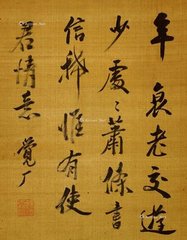 年衰老交遊
少處〻蕭條書
信稀惟有使
君情意
覺厂